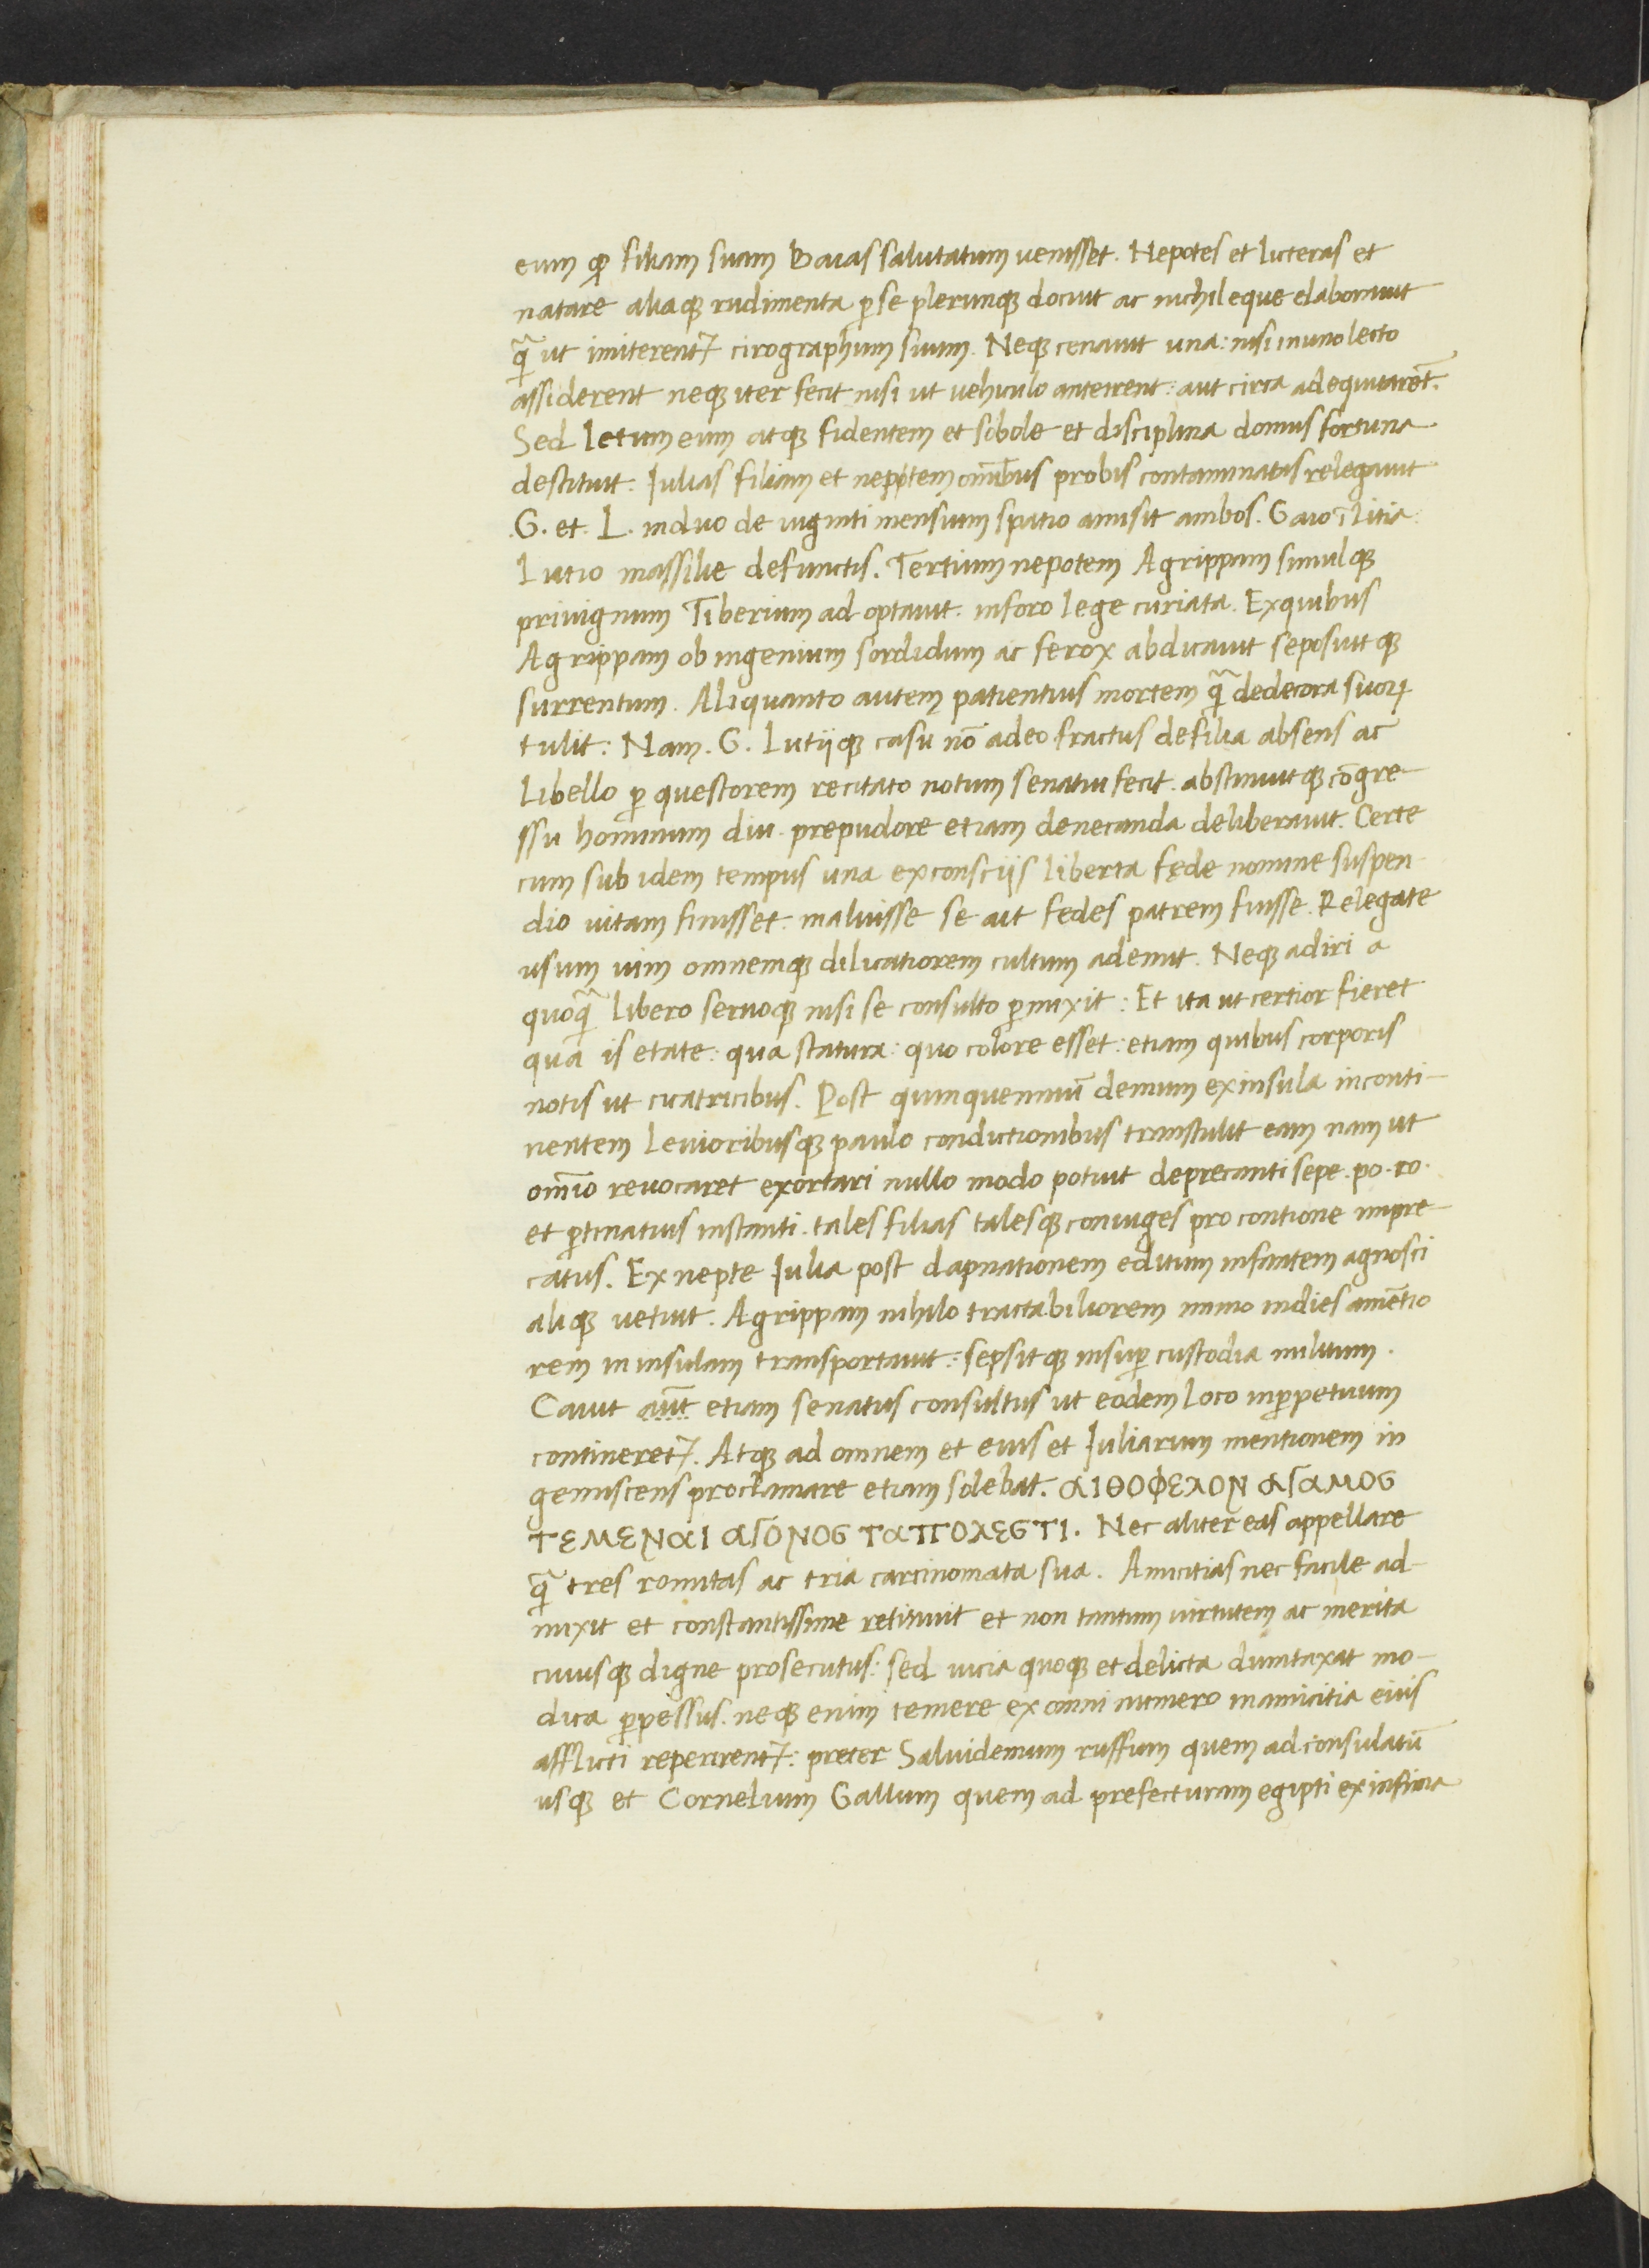 eum ꝙ filiam suam Baias salutatum uenisset. Nepotes et licteras et
natare aliaqꝫ rudimenta ꝑ se plerunqꝫ docuit ac nichil eque elaborauit
q̃ ut imiterent᷑ cirographum suum. Neqꝫ cenauit una: nisi in uno lecto
assiderent neqꝫ iter fecit nisi ut uehiculo anteirent: aut circa adequitarēt.
Sed letum eum atqꝫ fidentem et sobole et disciplina domus fortuna
destituit: Iulias filiam et nepotem om̄ibus probis contaminatas relegauit
.G. et. L. in duo de uiginti mensium spatio amisit ambos. Gaio ī litia
Lutio massilie defunctis. Tertium nepotem Agrippam simulqꝫ
priuignum Tiberium ad optauit. in foro lege curiata. Ex quibus
Agrippam ob ingenium sordidum ac ferox abdicauit seposuitqꝫ
surrentum. Aliquanto autem patientius mortem q̃ dedecora suoꝝ
tulit: Nam. G. Lutijqꝫ casu nō adeo fractus de filia absens ac
libello ꝑ questorem recitato notum senatui fecit. abstinuitqꝫ cōgre-
ssu hominum diu. pre pudore etiam de necanda deliberauit. Certe
cum sub idem tempus una ex consciis liberta fede nomine suspen-
dio uitam finisset: maluisse se ait fedes patrem fuisse. Relegate
usum uini omnemqꝫ dilicatiorem cultum ademit. Neqꝫ adiri a
quoq̃ libero seruoqꝫ nisi se consulto ꝑmixit: Et ita ut certior fieret
qua is etate: qua statura: quo colore esset: etiam quibus corporis
notis ut cicatricibus. Post quinquenniū demum ex insula in conti-
nentem leuioribusqꝫ paulo condictionibus transtulit eam nam ut
om̄io reuocaret exortari nullo modo potuit deprecanti sepe. po. ro.
et ꝑtinatius instanti. tales filias talesqꝫ coniuges pro contione impre-
catus. Ex nepte Iulia post dapnationem editum infantem agnosci
aliqꝫ uetuit. Agrippam nihilo tractabiliorem immo in dies amētio
rem in insulam transportauit: sepsitqꝫ insuꝑ custodia militum.
Cauit aut̄ etiam senatus consultus ut eodem loco in ꝑpetuum
contineret᷑. Atqꝫ ad omnem et eius et Iuliarum mentionem in
gemiscens proclamare etiam solebat. ΑΙΘΟΦΕΛΟΝ ΑΓΑΜΟϹ
ΤΕΜΕΝΑΙ ΑΓΟΝΟϹ ΤΑΠΟΛΕϹΤΙ. Nec aliter eas appellare
q̃ tres romitas ac tria carcinomata sua. Amicitias nec facile ad-
mixit et constantissime retituit et non tantum uirtutem ac merita
cuiusqꝫ digne prosecutus: sed uicia quoqꝫ et delicta dumtaxat mo-
dica ꝑpessus. neqꝫ enim temere ex omni numero in amicitia eius
afflicti reperirent᷑: preter Saluidemum ruffum quem ad consulatū
usqꝫ et Cornelium Gallum quem ad prefecturam egipti ex infima